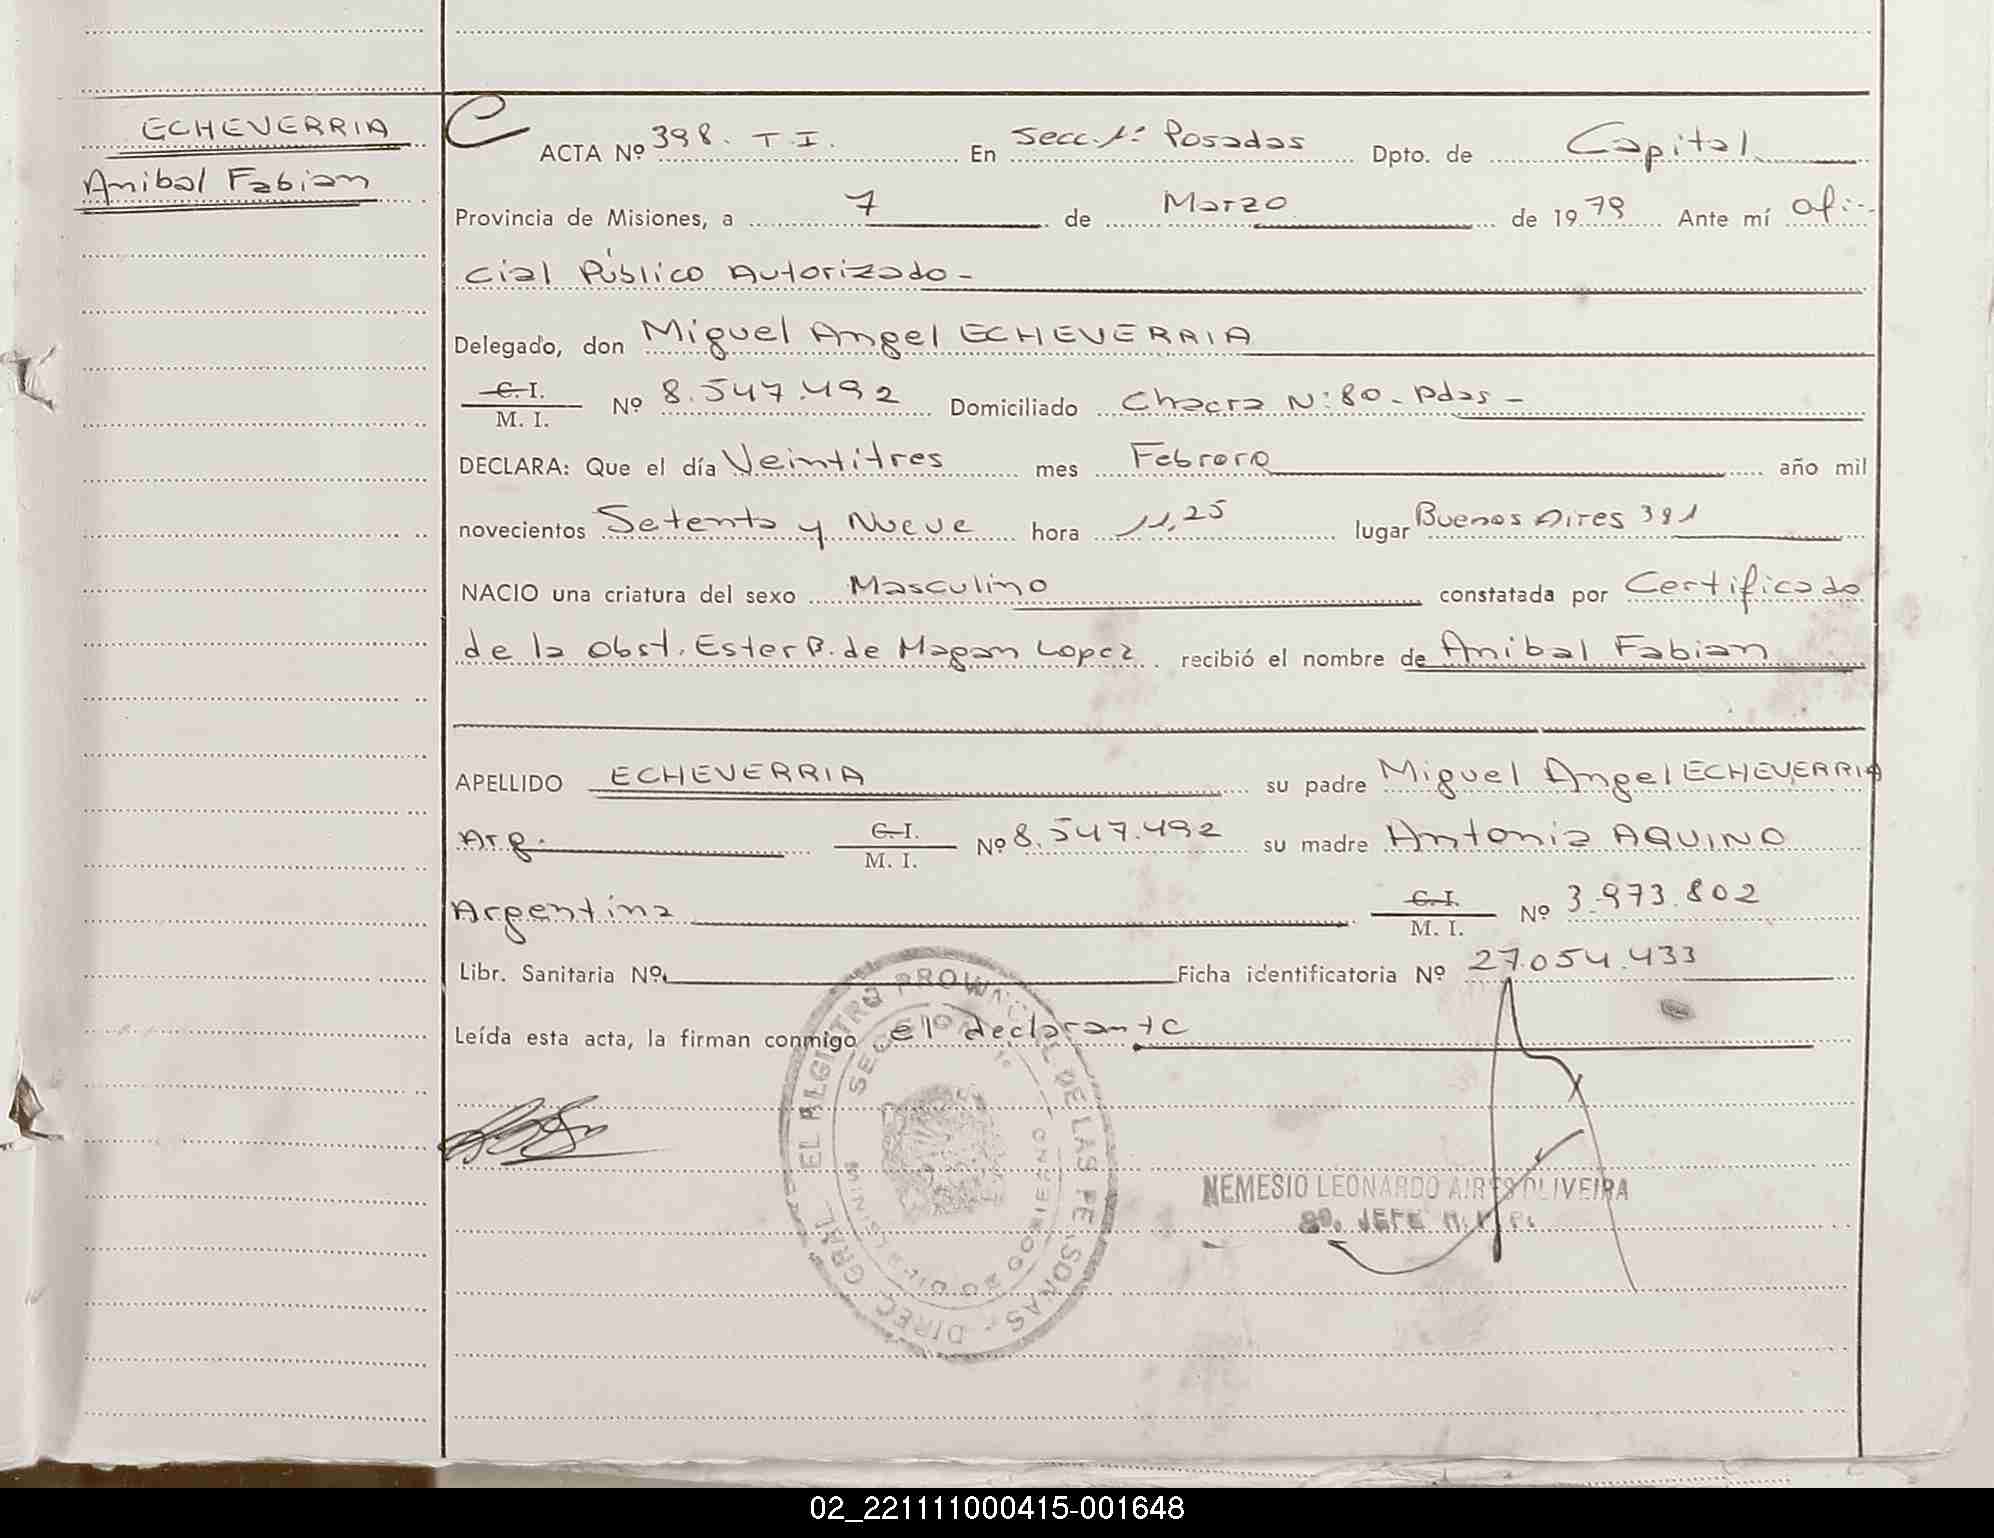 ECHEVERRIA
Anibal Fabian
ACTA Nº 398. T.I. En Secc. 1ª Posadas Dpto. de Capital
Provincia de Misiones, a 7 de Marzo de 1979 Ante mí ofi-
cial Público Autorizado-
Delegado, don Miguel Angel ECHEVERRIA
C. I.
M. I. Nº 8.547.492 Domiciliado Chacra N: 80 - Pdas -
DECLARA: Que el día Veintitres mes Febrero año mil
novecientos Setenta y Nueve hora 11,25 lugar Buenos Aires 391
NACIO una criatura del sexo Masculino constatada por Certificado
de la Obst. Ester B. de Magan Lopez recibió el nombre de Anibal Fabian
APELLIDO ECHEVERRIA su padre Miguel Angel ECHEVERRIA
Arg. C. I.
M. I. Nº 8.547.492 su madre Antonia AQUINO
Argentina C. I.
M. I. Nº 3.973.802
Libr. Sanitaria Nº Ficha identificatoria Nº 27.054.433
Leída esta acta, la firman conmigo el declarante
NEMESIO LEONARDO AIRES OLIVEIRA
JEFE
02_221111000415-001648